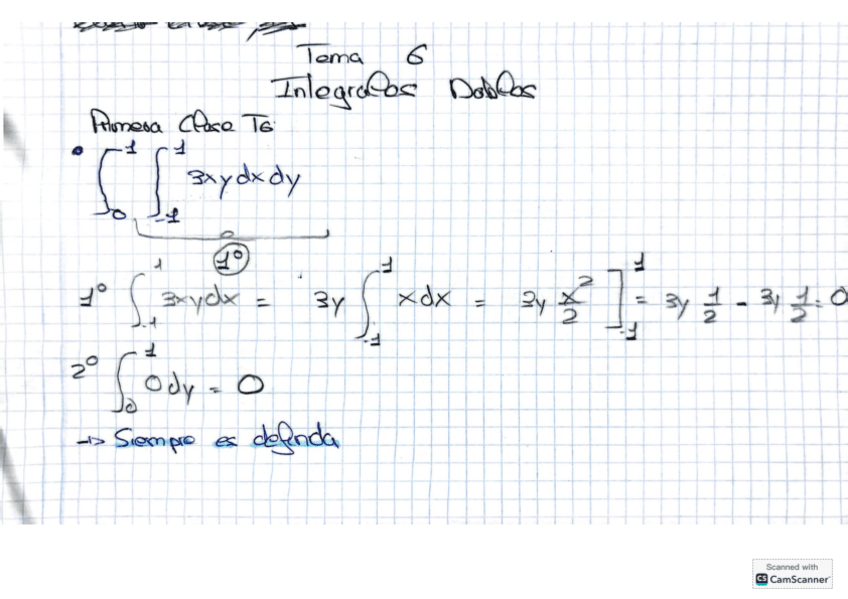 Tema 6
Integrales Dobles
Primera Clase T6
• ∫₀¹ ∫₋₁¹ 3xy dx dy
1º
1º ∫₋₁¹ 3xy dx = 3y ∫₋₁¹ x dx = 3y x²/2 ]₋₁¹ = 3y 1/2 - 3y 1/2 = 0
2º ∫₀¹ 0 dy = 0
-> Siempre es definida
Scanned with
CS CamScanner